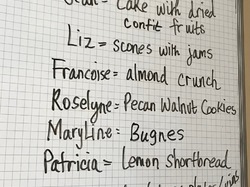 = Cake with dried
confit fruits
Liz = scones with jams
Francoise = almond crunch
Roselyne = Pecan Walnut Cookies
MaryLine = Bugnes
Patricia = Lemon shortbread